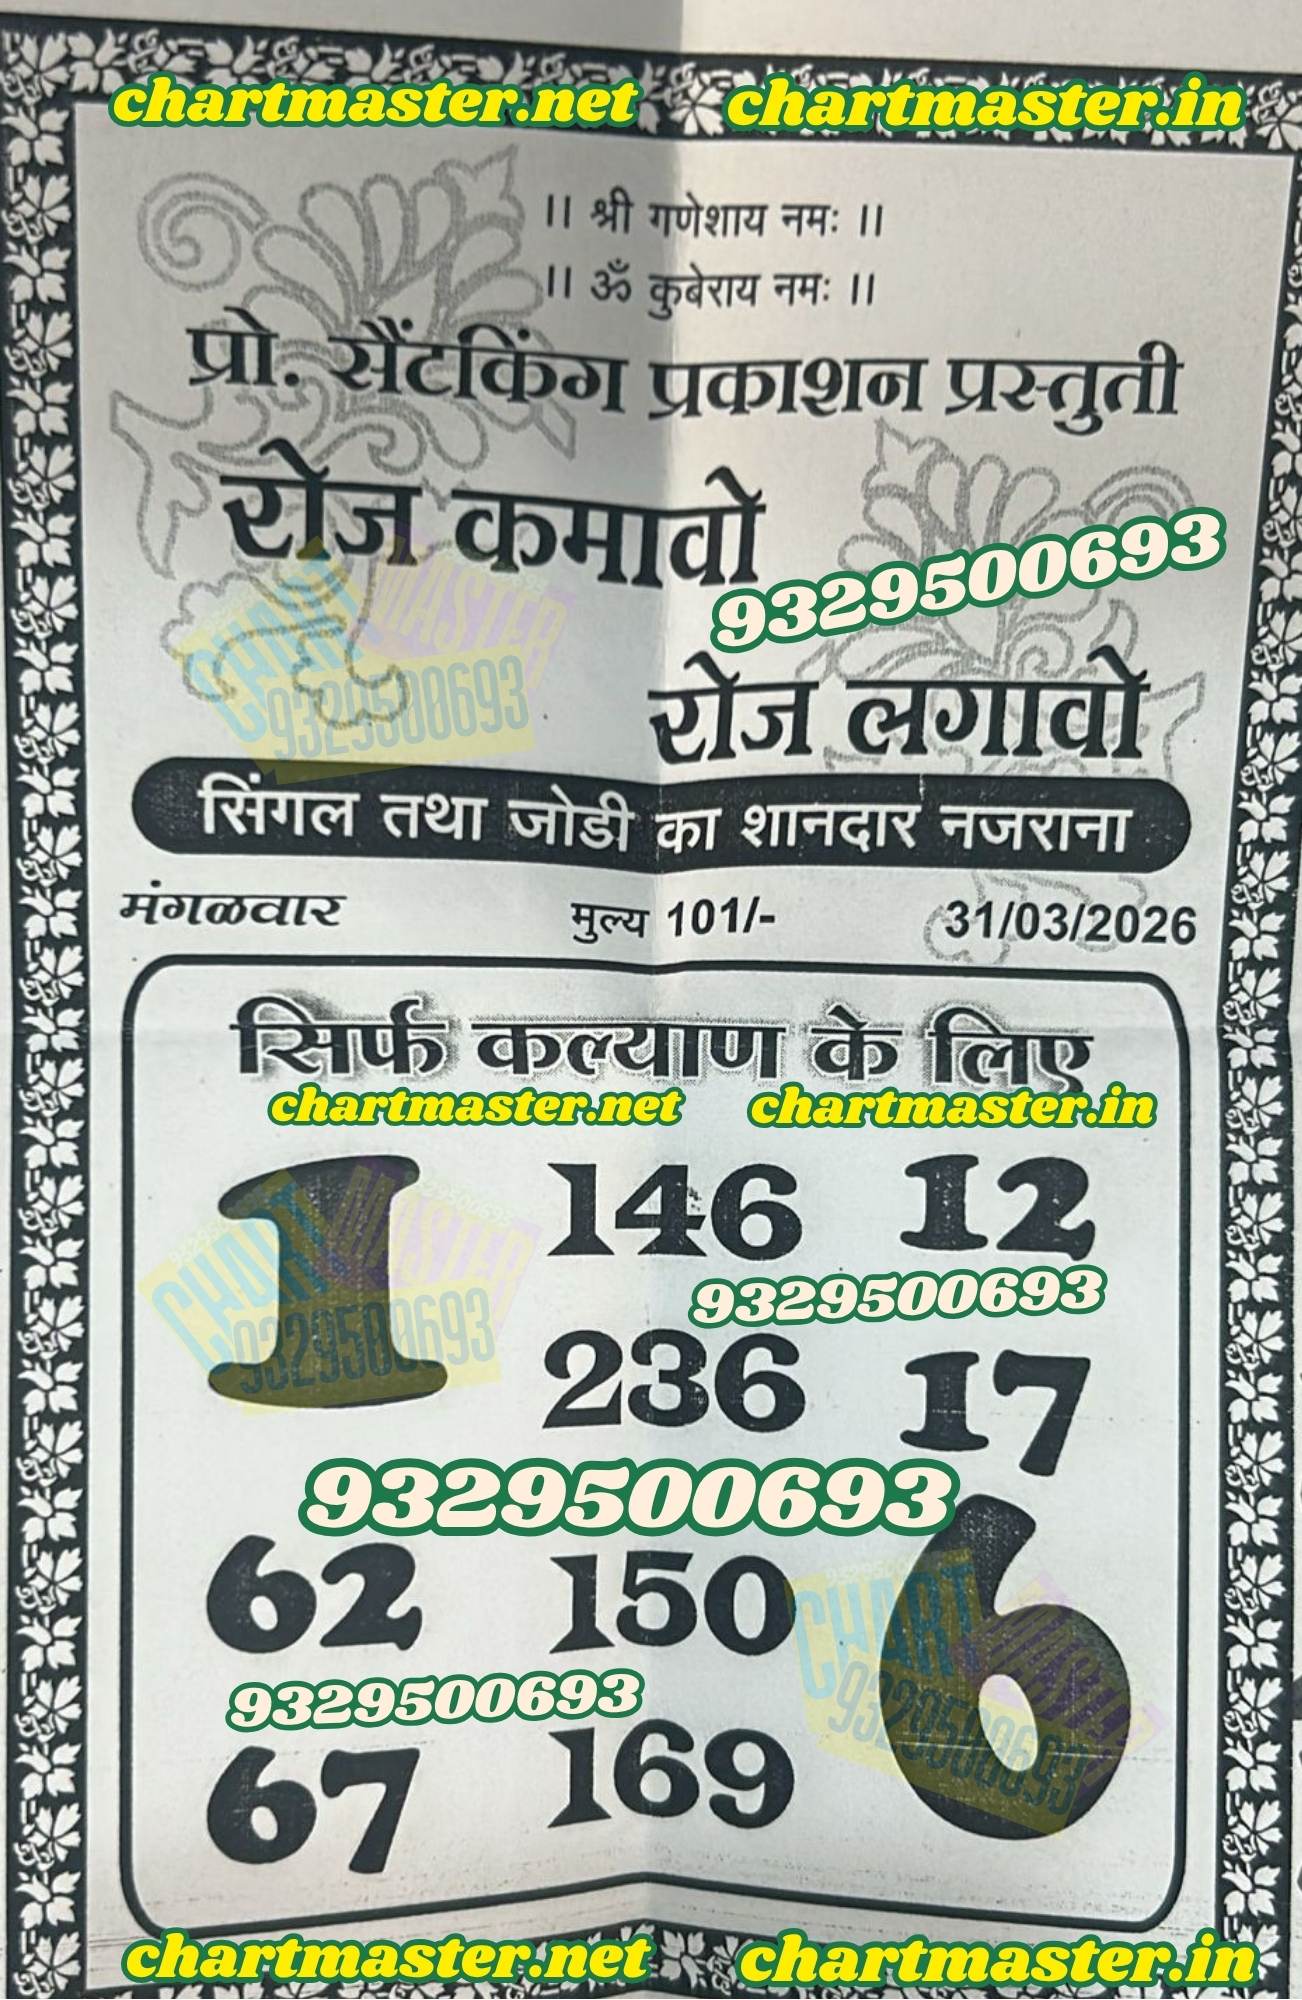 chartmaster.net chartmaster.in
।। श्री गणेशाय नमः ।।
।। ॐ कुबेराय नमः ।।
प्रो. सैंटकिंग प्रकाशन प्रस्तुती
रोज कमावो
9329500693
CHART MASTER
9329500693
रोज लगावो
सिंगल तथा जोडी का शानदार नजराना
मंगळवार मुल्य 101/- 31/03/2026
सिर्फ कल्याण के लिए
chartmaster.net chartmaster.in
1 146 12
CHART MASTER
9329500693
9329500693
236 17
9329500693
62 150 6
CHART MASTER
9329500693
9329500693
67 169
chartmaster.net chartmaster.in